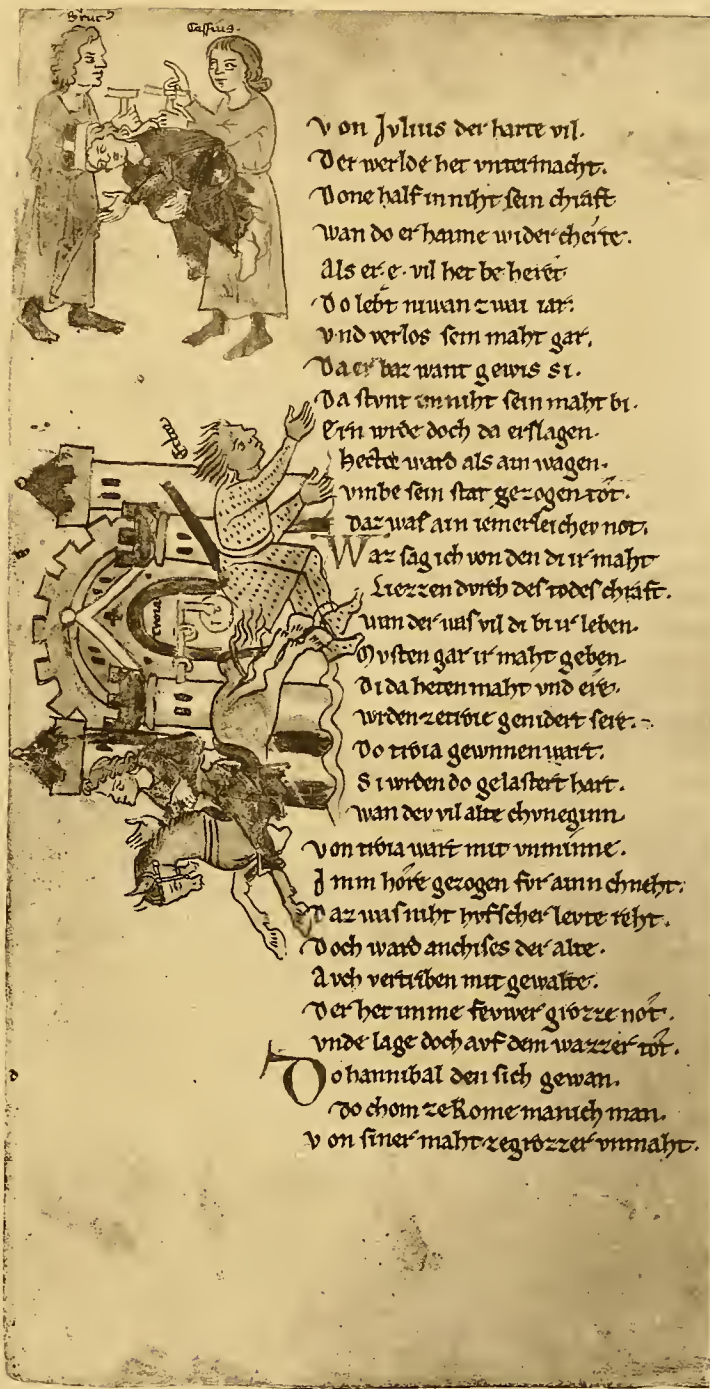 Brut9
Cassius.
Von Jvlius der harte vil.
Der werlde het vntermacht.
Done half in niht sein chraft
wan do er haime wider cherte.
Als er. e. vil het be heret
Do lebt niwan zwai iar.
vnd verlos sein maht gar.
Da er baz want gewis si.
Da stvnt im niht sein maht bi.
Ern wrde doch da erslagen.
hector ward als ain wagen.
vmbe sein stat gezogen tot.
daz was ain iemerleicher not.
Waz sag ich von den di ir maht
Liezzen dvrch des todes chraft.
wan der was vil di bi ir leben.
Mvsten gar ir maht geben.
Di da heten maht vnd ere.
wrden ze troie genidert sere.
Do troia gewnnen wart.
Si wrden do gelastert hart.
wan dev vil alte chvneginn
von troia wart mit vnminne.
Jmm hore gezogen fvr ainn chneht.
Daz was niht hvfscher levte reht.
Doch ward anchises der alte.
Avch vertriben mit gewalte.
Der het imme fevwer grozze not.
vnde lage doch avf dem wazzer tot.
Do hannibal den sich gewan.
do chom ze Rome manich man.
von siner maht ze grozzer vnmaht.
troie